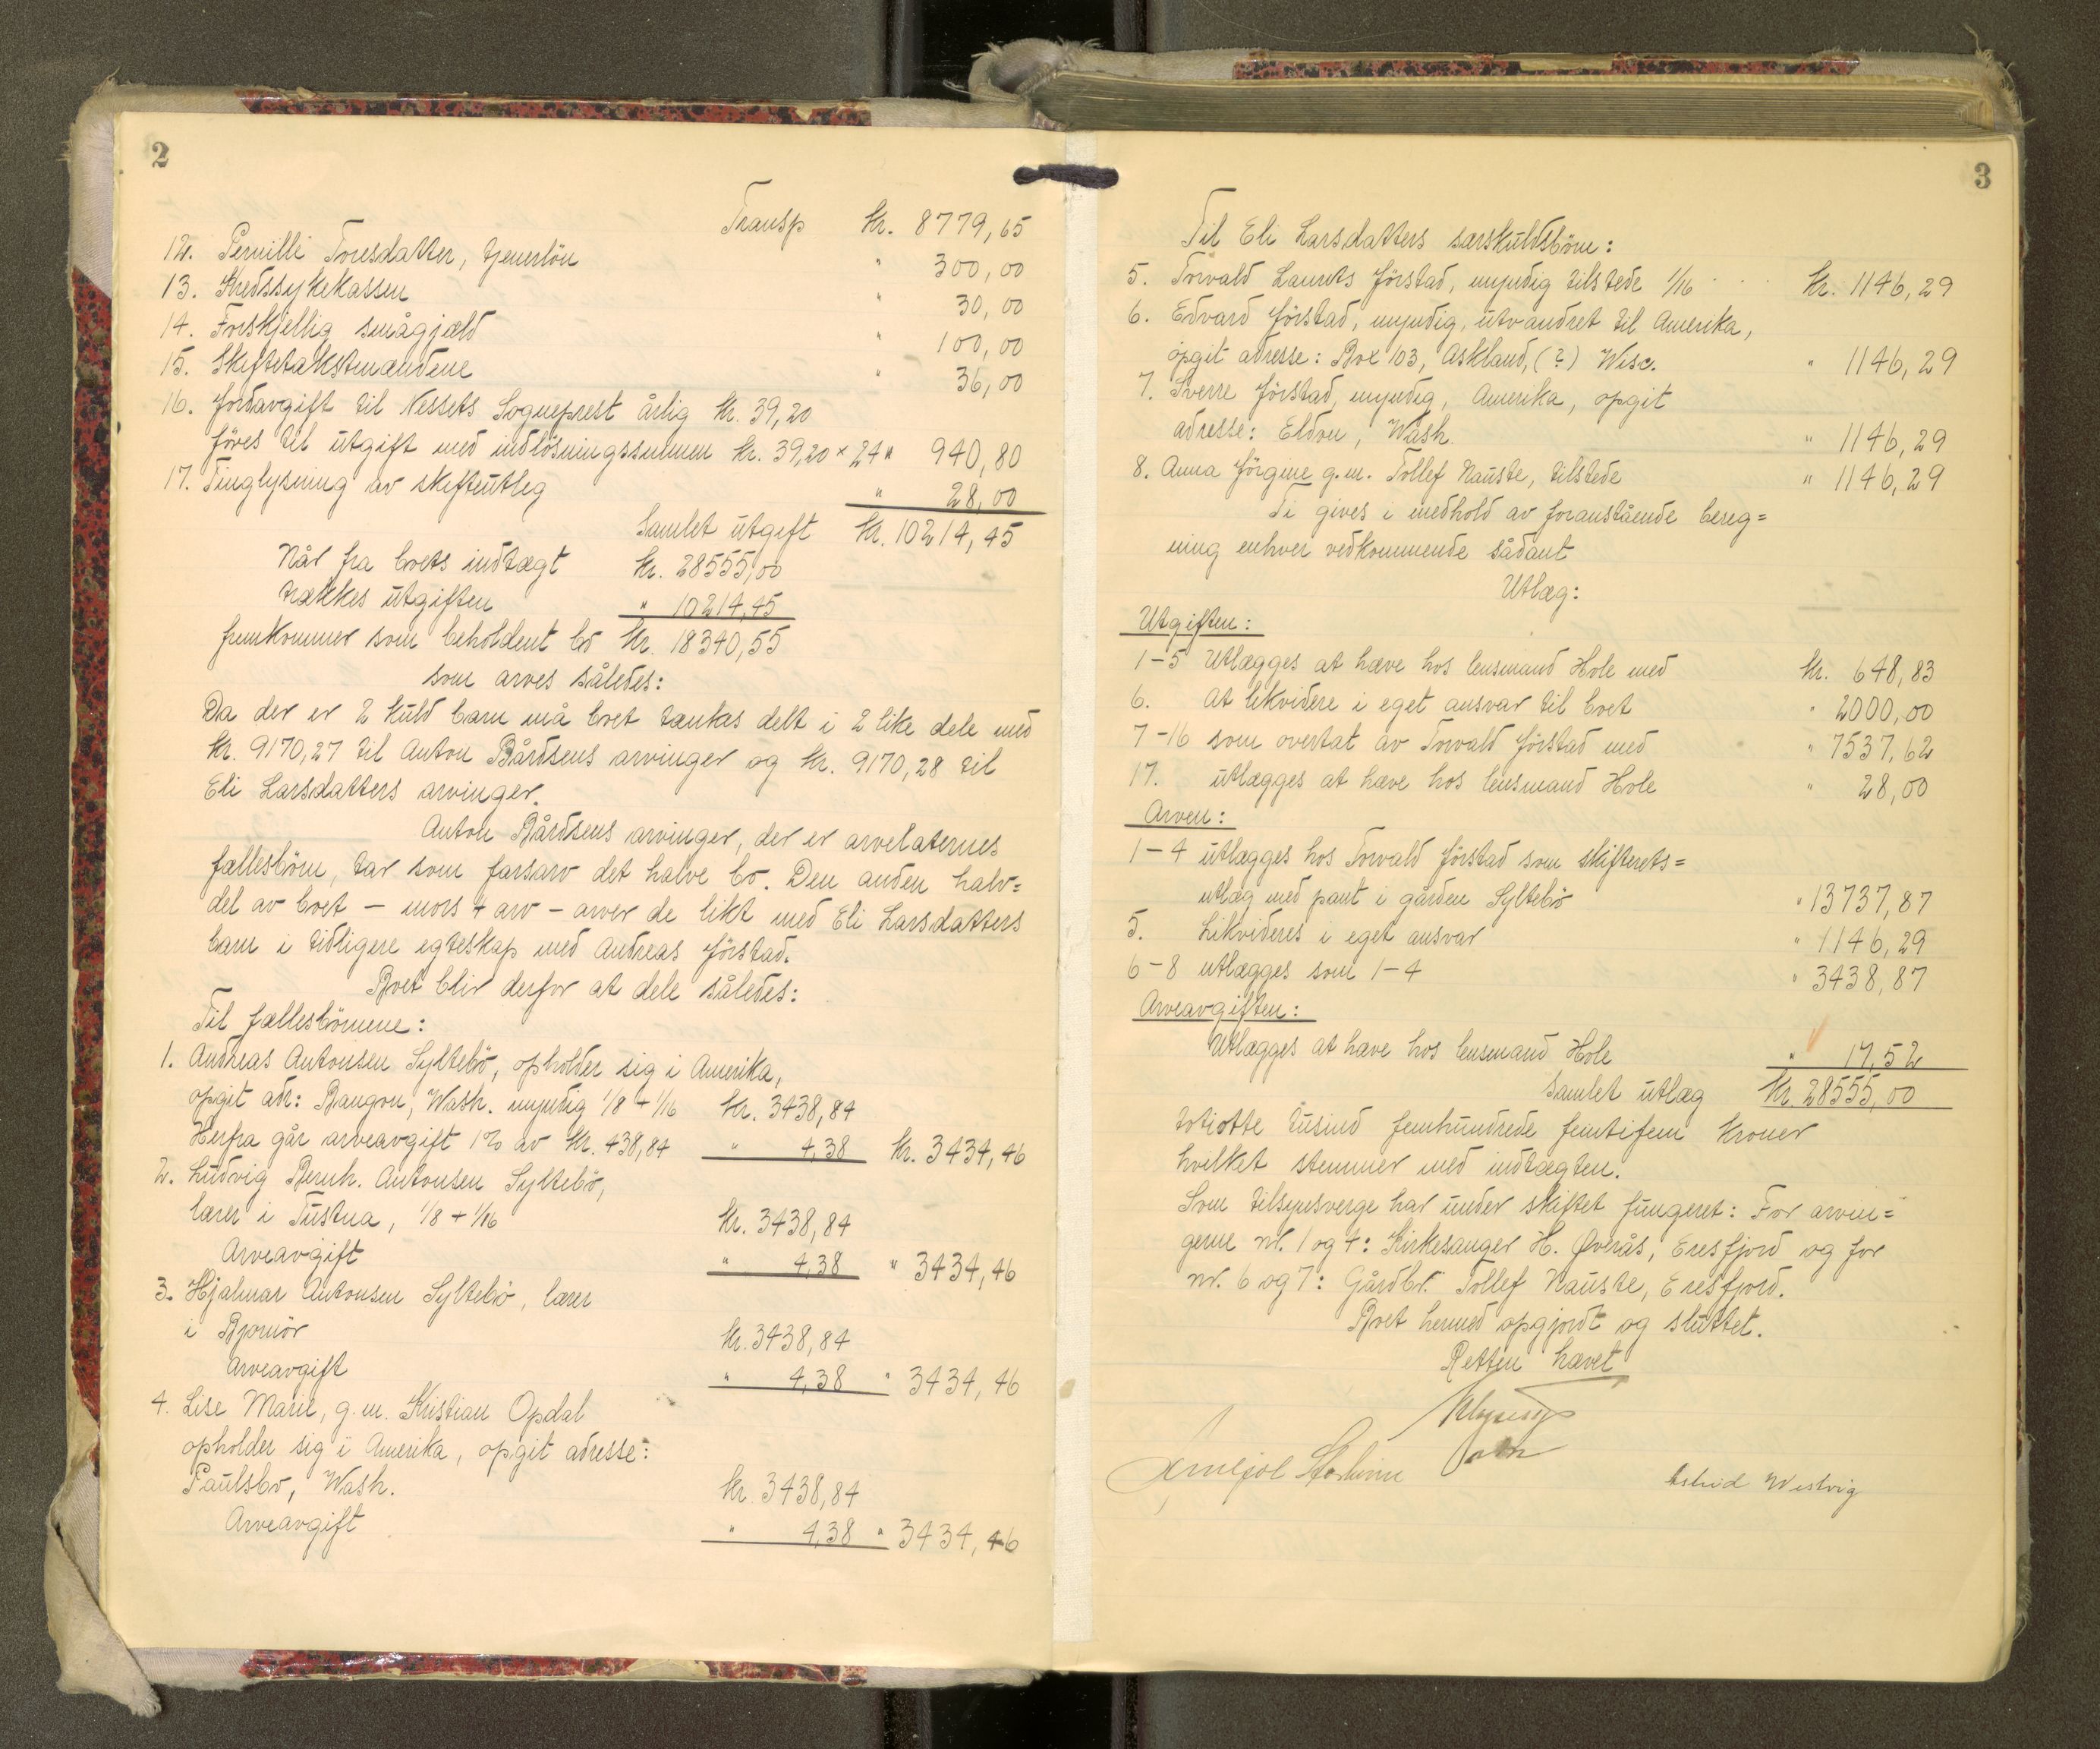 2
Transp Kr. 8779,65
12. Pernilli Toresdatter, tjenerlön " 300,00
13. Kredssykekassen " 30,00
14. Forskjellig smågjæld " 100,00
15. Skiftetakstmændene " 36,00
16. Jordavgift til Nessets Sogneprest årlig kr. 39,20
föres til utgift med indlösningssummen kr. 39,20 × 24 " 940,80
17. Tinglysning av skifteutleg " 28,00
Samlet utgift Kr. 10214,45
Når fra boets indtægt kr. 28555,00
trækkes utgiften " 10214,45
fremkommer som beholdent bo kr. 18340,55
som arves således:
Da der er 2 kuld barn må boet tænkes delt i 2 like dele med
kr. 9170,27 til Anton Bårdsens arvinger og kr. 9170,28 til
Eli Larsdatters arvinger.
Anton Bårdsens arvinger, der er arvelaternes
fællesbörn, tar som farsarv det halve bo. Den anden halv=
del av boet – mors + arv – arver de likt med Eli Larsdatters
barn i tidligere egteskap med Andreas Jörstad.
Boet blir derfor at dele således:
Til fællesbörnene:
1. Andreas Antonsen Syltebö, opholder sig i Amerika,
opgit adr: Bangon, Wash. myndig 1/8 + 1/16 kr. 3438,84
Herfra går arveavgift 1% av kr. 438,84 " 4,38 Kr. 3434,46
2. Ludvig Bernh. Antonsen Syltebö,
lærer i Tustna, 1/8 + 1/16 kr. 3438,84
Arveavgift " 4,38 " 3434,46
3. Hjalmar Antonsen Syltebö, lærer
i Bjornör kr. 3438,84
Arveavgift " 4,38 " 3434,46
4. Lise Marie, g.m. Kristian Opdal
opholder sig i Amerika, opgit adresse:
Paulsbo, Wash. kr. 3438,84
Arveavgift " 4,38 " 3434,46
3
Til Eli Larsdatters særskuldsbörn:
5. Torvald Laurits Jörstad, myndig tilstede 1/16 kr. 1146,29
6. Edvard Jörstad, myndig, utvandret til Amerika,
opgit adresse: Box 103, Askland, (?) Wisc. " 1146,29
7. Sverre Jörstad, myndig, Amerika, opgit
adresse: Eldon, Wash. " 1146,29
8. Anna Jörgine g.m. Tollef Nauste, tilstede " 1146,29
Ti gives i medhold av foranstående bereg=
ning enhver vedkommende sådant
Utlæg:
Utgiften:
1–5 Utlægges at hæve hos lensmand Hole med kr. 648,83
6. At likvidere i eget ansvar til boet " 2000,00
7–16 som overtat av Torvald Jörstad med " 7537,62
17. utlægges at hæve hos lensmand Hole " 28,00
Arven:
1–4 utlægges hos Torvald Jörstad som skifterets=
utlæg med pant i gården Syltebö " 13737,87
5. Likvideres i eget ansvar " 1146,29
6–8 utlægges som 1–4 " 3438,87
Arveavgiften:
Utlægges at hæve hos lensmand Hole " 17,52
Samlet utlæg kr. 28555,00
totiotte tusind femhundrede femtifem kroner
hvilket stemmer med indtægten.
Som tilsynsverge har under skiftet fungeret: For arvin=
gerne nr. 1 og 4: Kirkesanger H. Øverås, Eresfjord og for
nr. 6 og 7: Gårdbr. Tollef Nauste, Eresfjord.
Boet hermed opgjordt og sluttet.
Retten hævet
Astrid Westvig